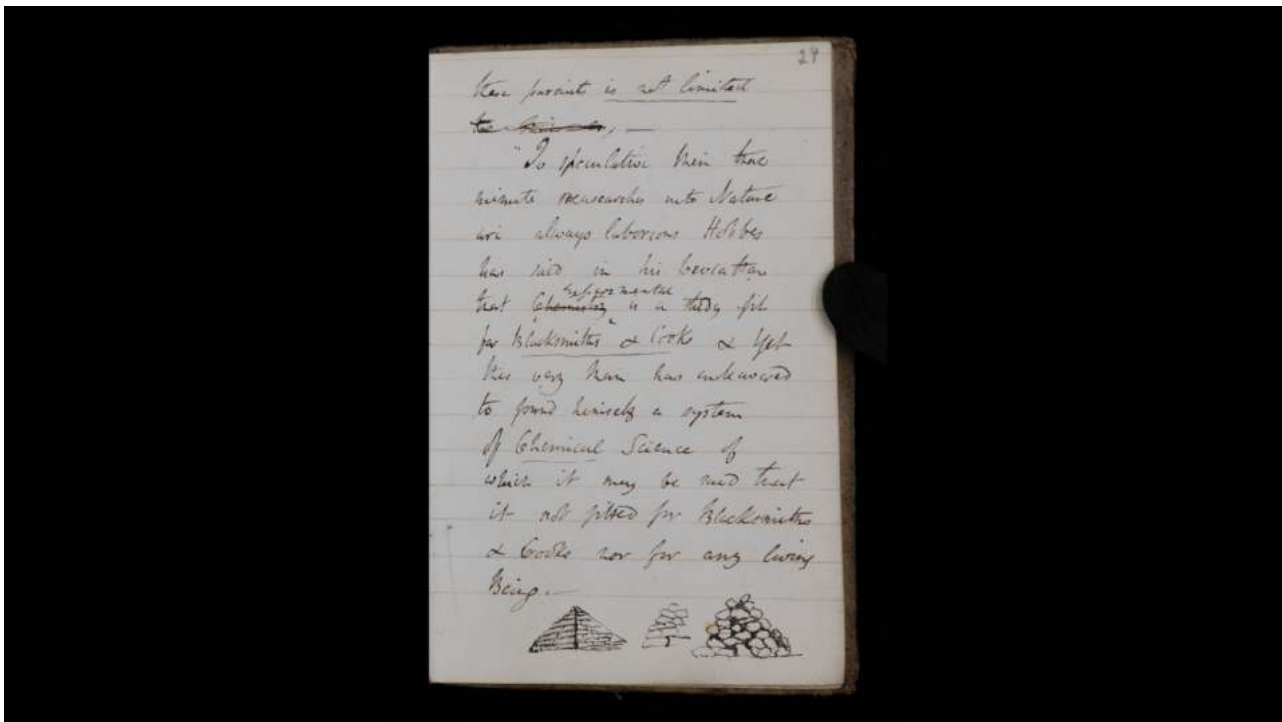 29
these pursuits is not limited
"To speculative Men these
minute researches into Nature
are always laborious Hobbes
has said in his Leviathan
experimental
that Chemistry is a study fit
for "Blacksmiths" & Cooks & yet
this very Man has endeavored
to found himself a system
of Chemical Science of
which it may be said that
it not fitted for Blacksmiths
& Cooks nor for any living
Being.—